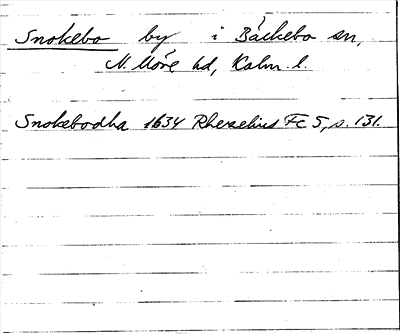 Snokebo by i Bäckebo sn,
N. Möre hd, Kalm. l.
Snokebodha 1634 Rhezelius Fc 5, s. 131.